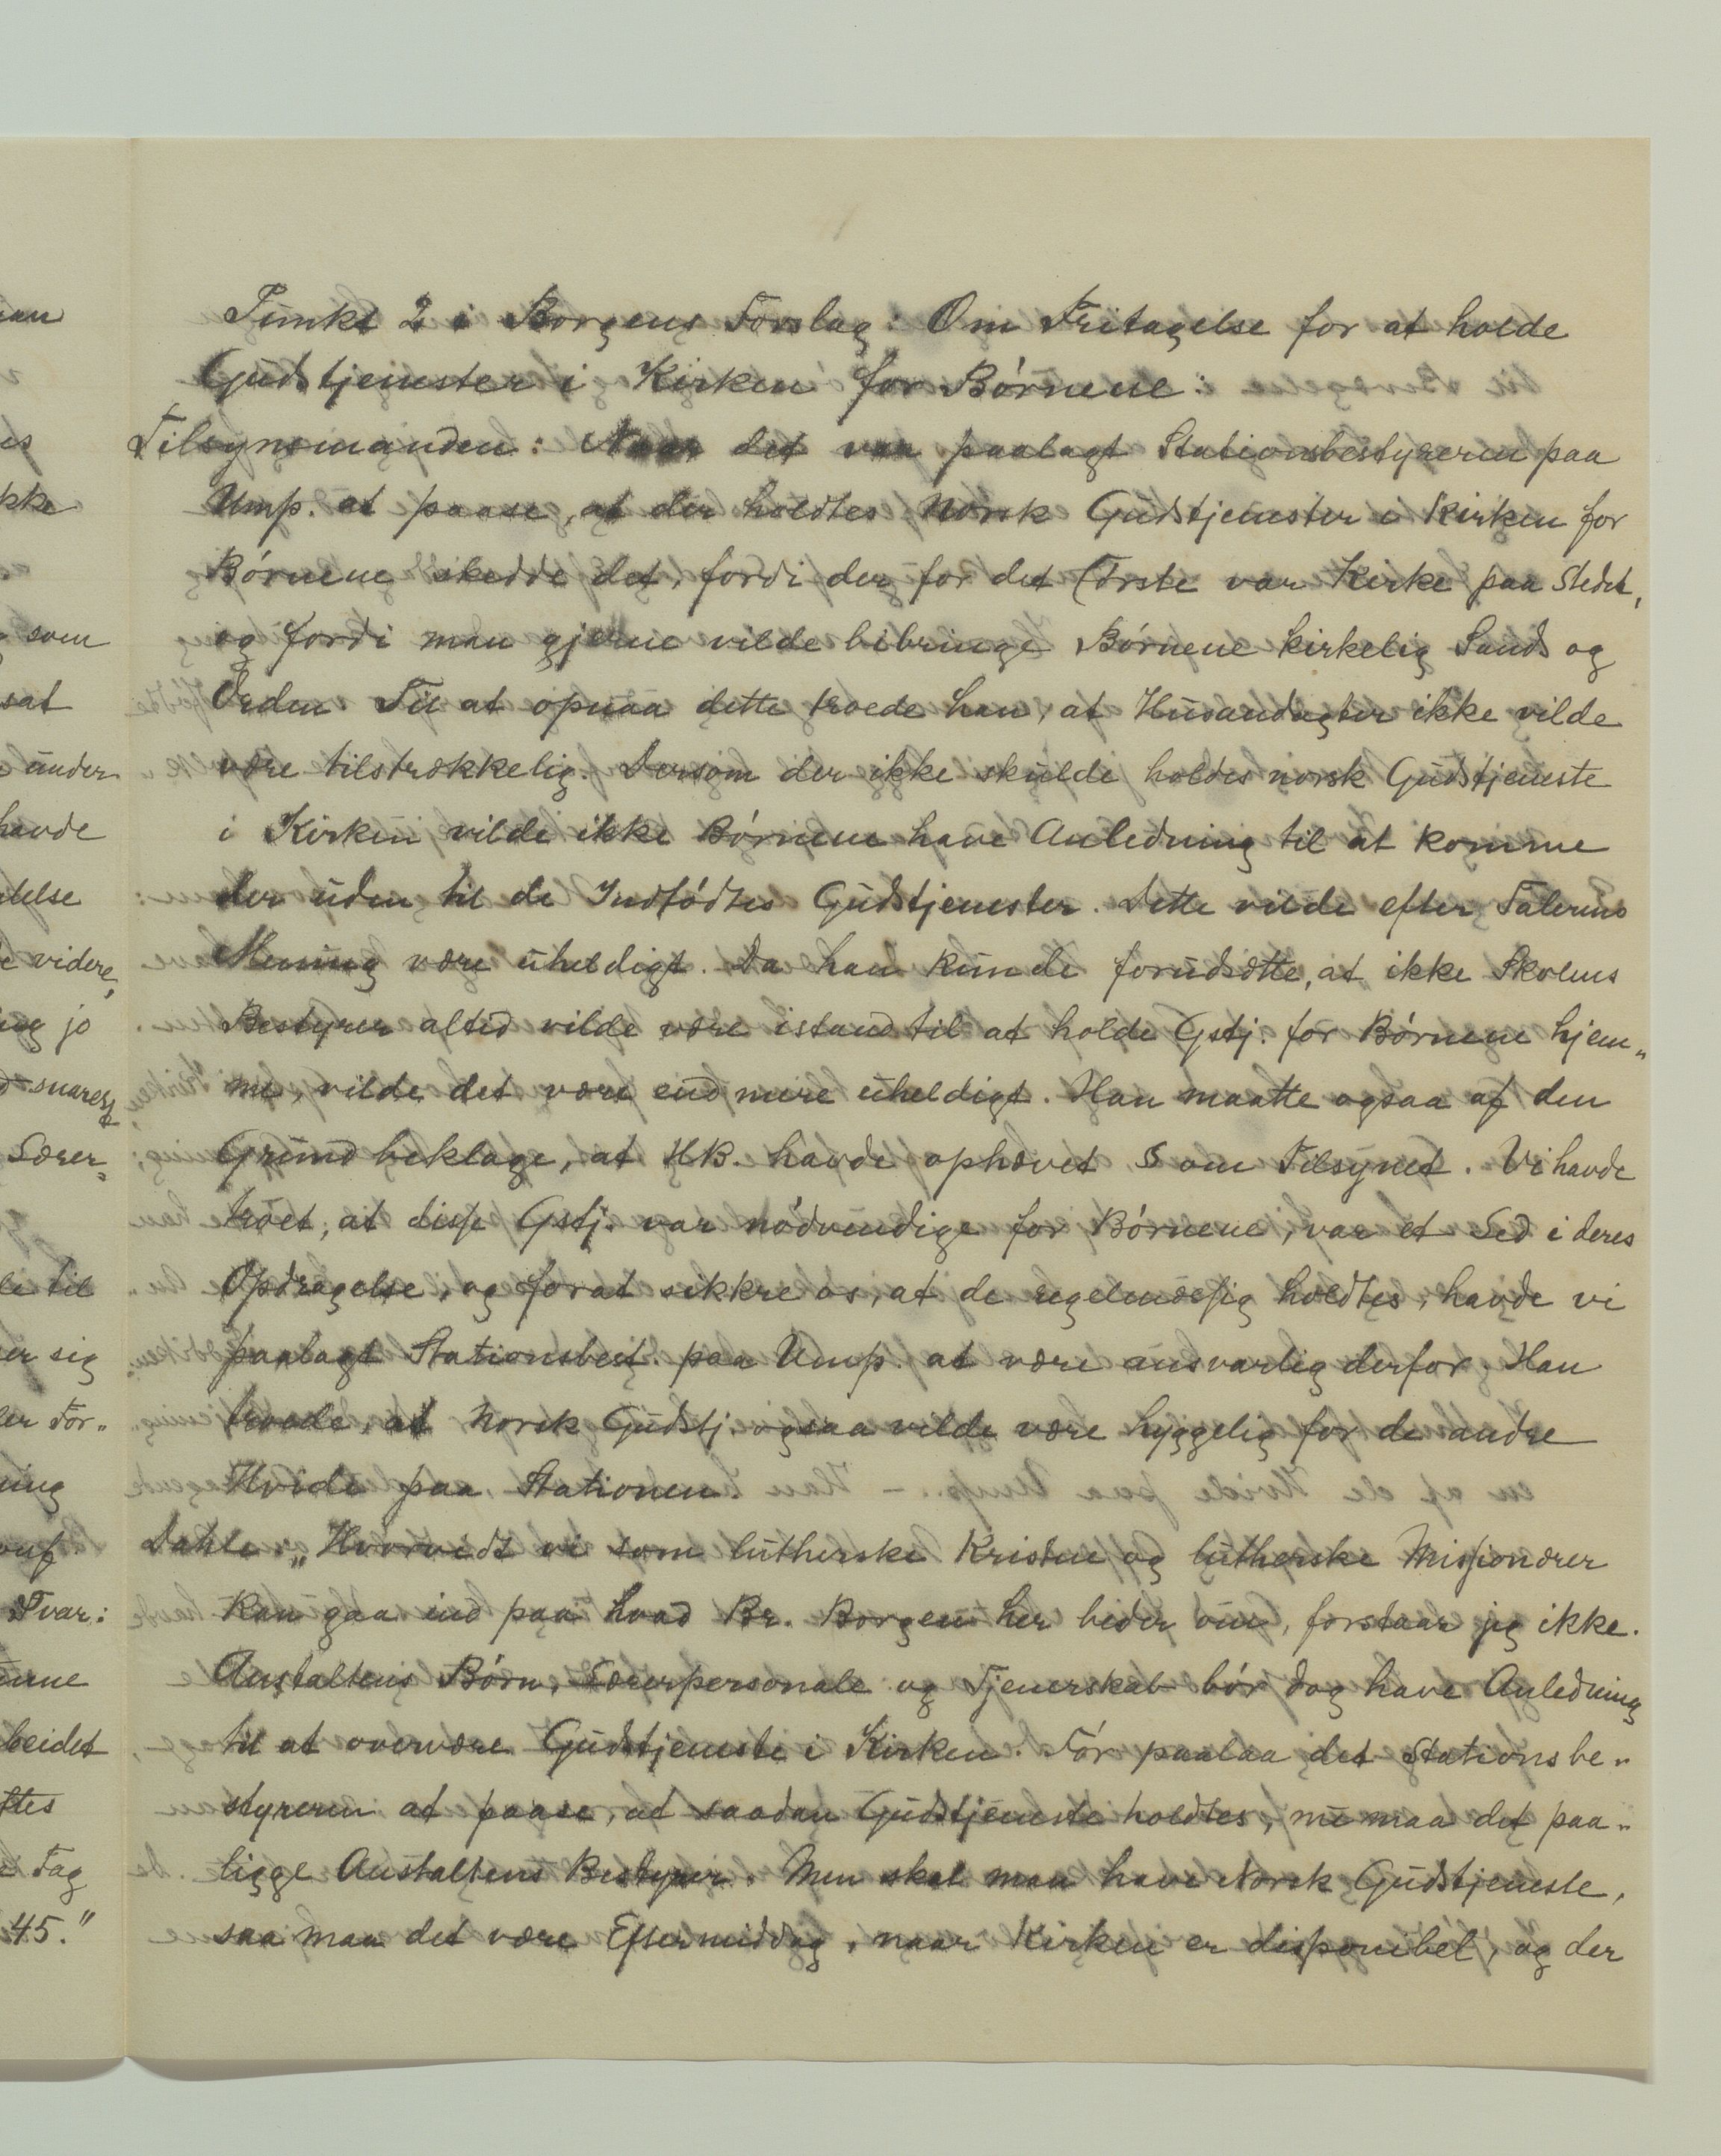 Punkt 2 i Borgens Forslag: Om Fritagelse for at holde
Gudstjenester i Kirken for Børnene:
Tilsynsmanden: Naar det var paalagt Stationsbestyreren paa
Ump. at paase, at der holdtes Norsk Gudstjenester i Kirken for
Børnene, skedde det, fordi der for det Første var Kirke paa Stedet,
og fordi man gjerne vilde bibringe Børnene kirkelig Sands og
Orden. Til at opnaa dette troede han, at Husandagter ikke vilde
være tilstrækkelig. Dersom der ikke skulde holdes norsk Gudstjeneste
i Kirken vilde ikke Børnene have Anledning til at komme
der uden til de Indfødtes Gudstjenester. Dette vilde efter Talerens
Mening være uheldigt. Da han kunde forudsætte, at ikke Skolens
Bestyrer altid vilde være istand til at holde Gstj. for Børnene hjem„
me, vilde det være end mere uheldigt. Han maatte ogsaa af den
Grund beklage, at HB. havde ophævet § om Tilsynet. Vi havde
troet, at disse Gstj. var nødvendige for Børnene, var et Led i deres
Opdragelse, og forat sikkre os, at de regelmæssig holdtes, havde vi
paalagt Stationsbest. paa Ump. at være ansvarlig derfor. Han
troede, at Norsk Gudstj. ogsaa vilde være hyggelig for de andre
Hvide paa Stationen.
Dahle. „Hvorvidt vi som lutherske Kristne og lutherske Missionærer
kan gaa ind paa hvad Br. Borgen her beder om, forstaar jeg ikke.
Anstaltens Børn, Lærerpersonale og Tjenerskab bør dog have Anledning
til at overvære Gudstjeneste i Kirken. Før paalaa det Stationsbe„
styreren at paase, at saadan Gudstjeneste holdtes, nu maa det paa„
ligge Anstaltens Bestyrer. Men skal man have Norsk Gudstjeneste,
saa maa det være Eftermiddag, naar Kirken er disponibel, og der
som
sat
under
havde
videre,
jo
snarest
Lærer=
til
sig
For„
Svar:
Fag
45."